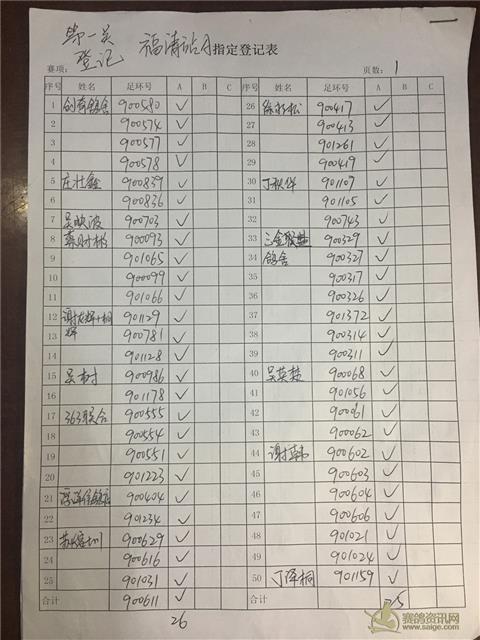 第一关
登记
福清站A指定登记表
赛项: 页数: 1
序号 姓名 足环号 A B C 序号 姓名 足环号 A B C
1 创奇鸽舍 900580 ✓ 26 徐孙松 900417 ✓
2 900574 ✓ 27 900413 ✓
3 900577 ✓ 28 901261 ✓
4 900578 ✓ 29 900419 ✓
5 庄壮鑫 900839 ✓ 30 丁秋华 901107 ✓
6 900836 ✓ 31 901105 ✓
7 吴映波 900703 ✓ 32 900743 ✓
8 蔡财彬 900093 ✓ 33 三金联盟 900329 ✓
9 901065 ✓ 34 鸽舍 900327 ✓
10 900099 ✓ 35 900317 ✓
11 901066 ✓ 36 900326 ✓
12 谢 辉+桐 901129 ✓ 37 901372 ✓
13 辉 900781 ✓ 38 900314 ✓
14 901128 ✓ 39 900311 ✓
15 吴 村 900986 ✓ 40 吴英楚 900068 ✓
16 901178 ✓ 41 901056 ✓
17 363联合 900555 ✓ 42 900061 ✓
18 900554 ✓ 43 900062 ✓
19 900551 ✓ 44 谢韩 900602 ✓
20 901223 ✓ 45 900603 ✓
21 900404 ✓ 46 900604 ✓
22 901234 ✓ 47 900606 ✓
23 苏 圳 900629 ✓ 48 901021 ✓
24 900616 ✓ 49 901024 ✓
25 901031 ✓ 50 丁泽桐 901159 ✓
合计 900611 ✓ 合计 25
26
赛鸽资讯网
www.saige.com